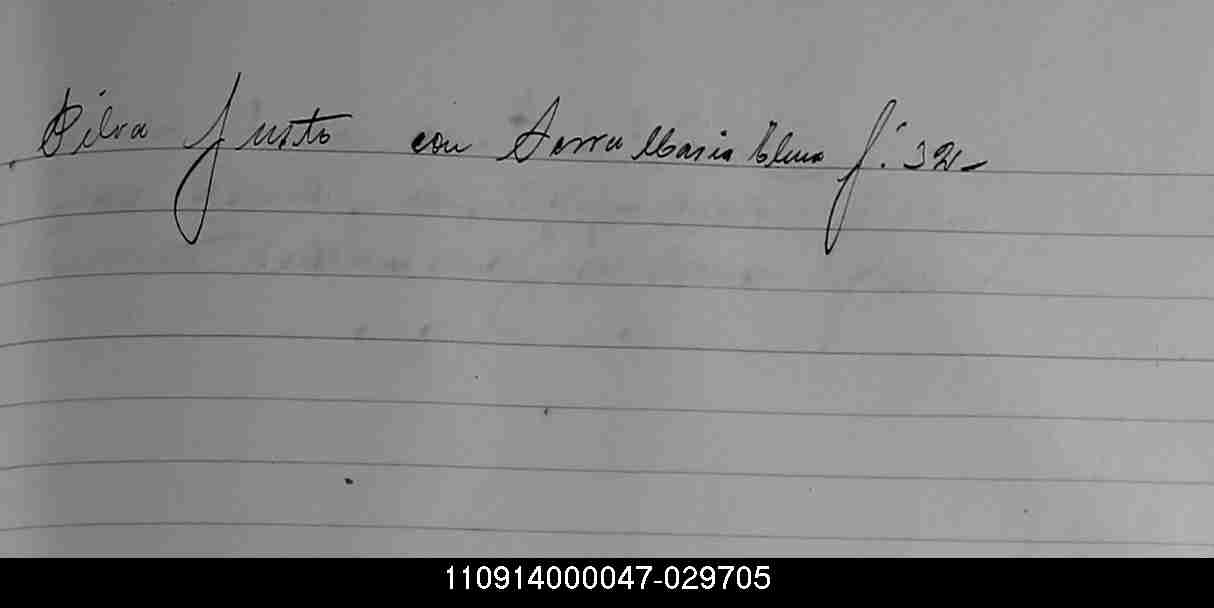 Silva Justo con Serra Maria Elena f. 32-
110914000047-029705